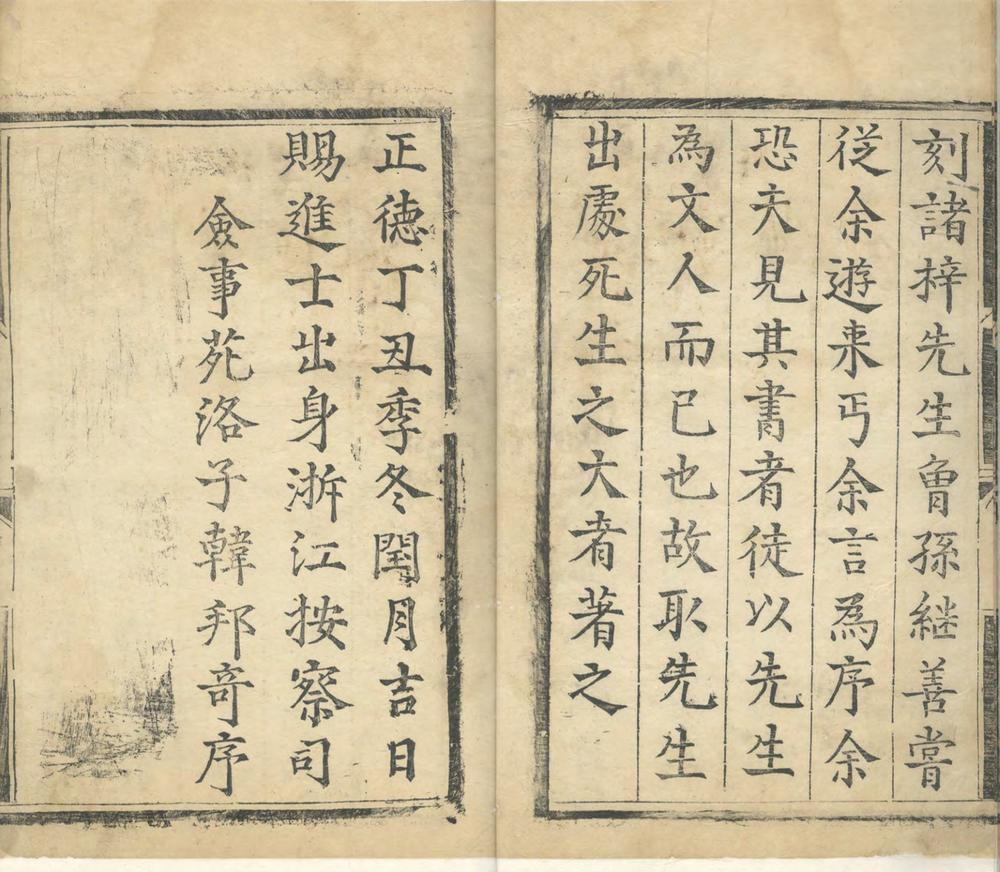 刻諸梓先生曾孫継善甞
從余遊来丐余言為序余
恐夫見其書者徒以先生
為文人而已也故取先生
出處死生之大者著之
正德丁丑季冬閏月吉日
賜進士出身浙江按察司
僉事苑洛子韓邦竒序